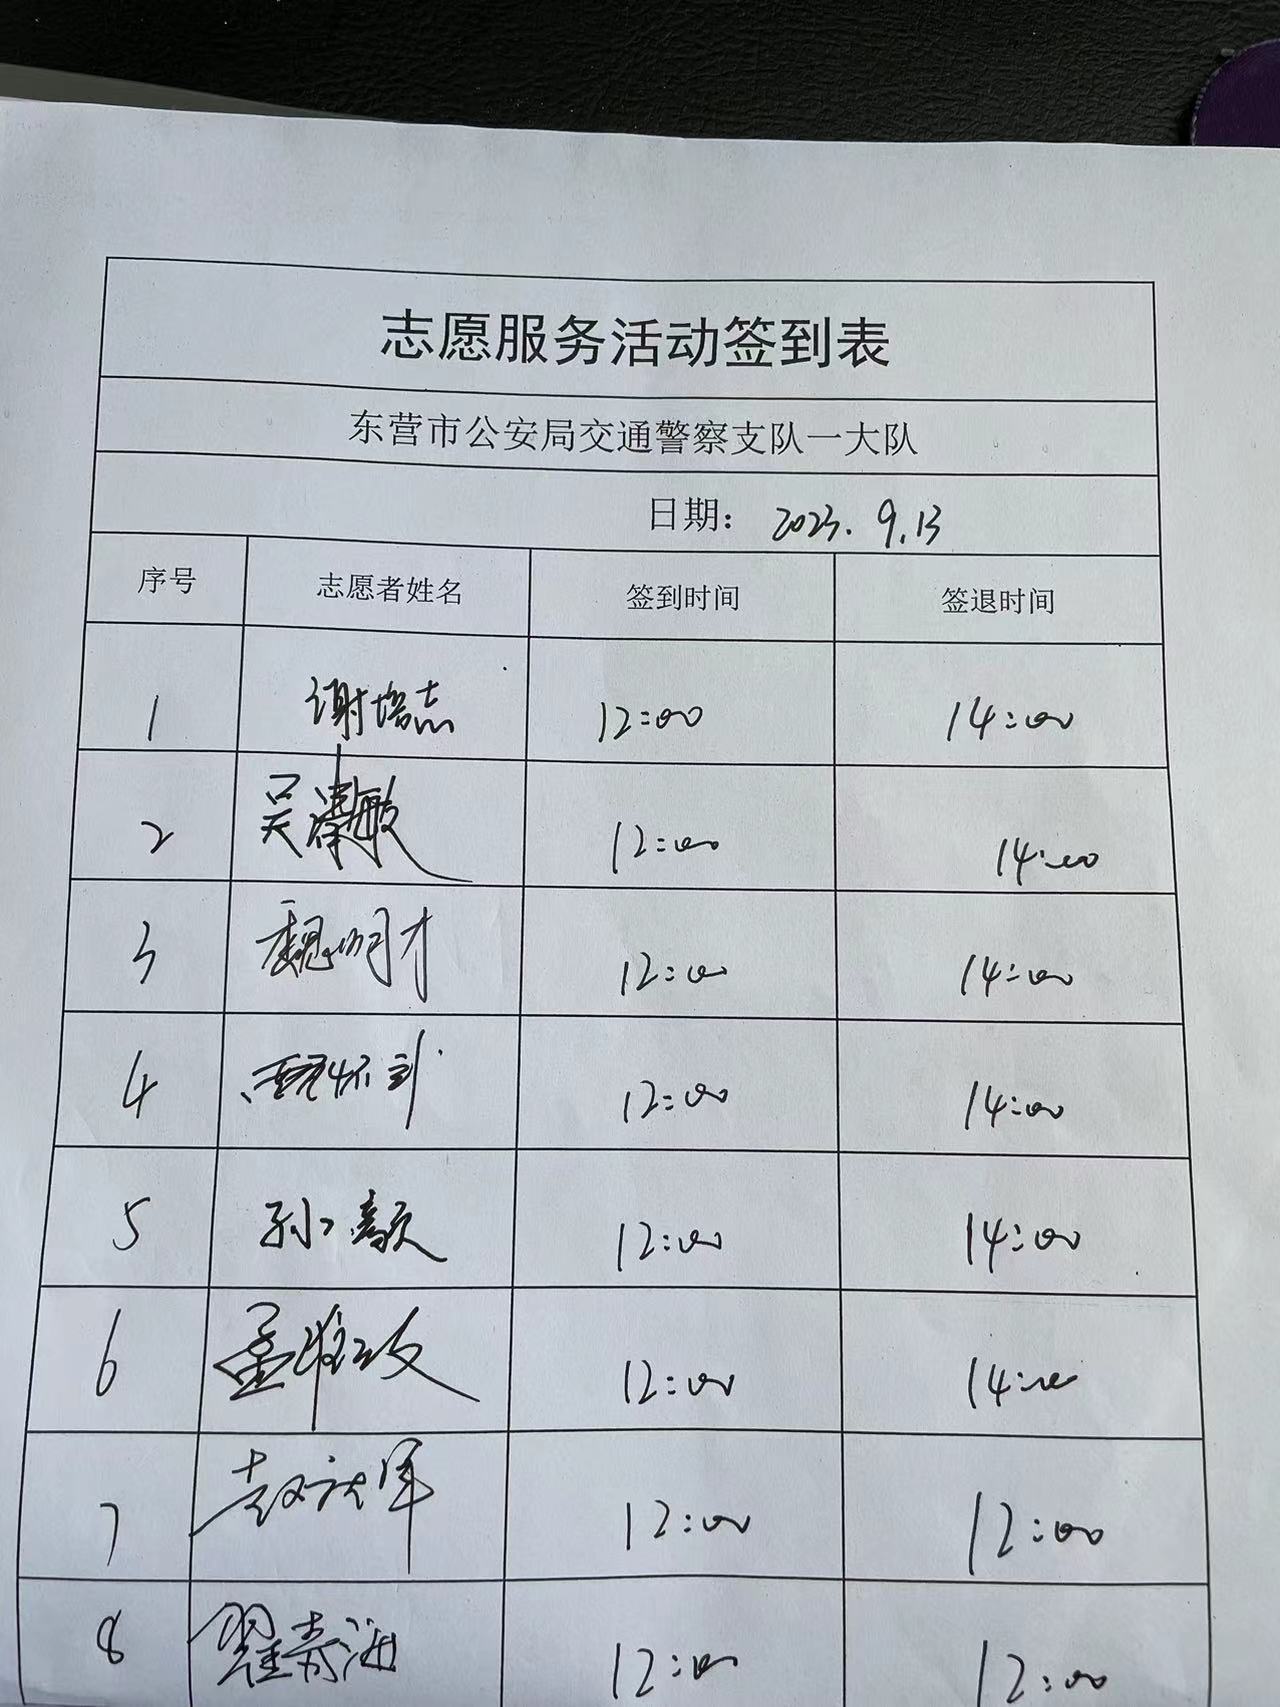 志愿服务活动签到表
东营市公安局交通警察支队一大队
日期： 2023. 9.13
序号 志愿者姓名 签到时间 签退时间
1 谢培志 12:00 14:00
2 吴清敏 12:00 14:00
3 魏明才 12:00 14:00
4 12:00 14:00
5 孙 12:00 14:00
6 孟 12:00 14:00
7 赵 军 12:00 12:00
8 翟青海 12:00 12:00